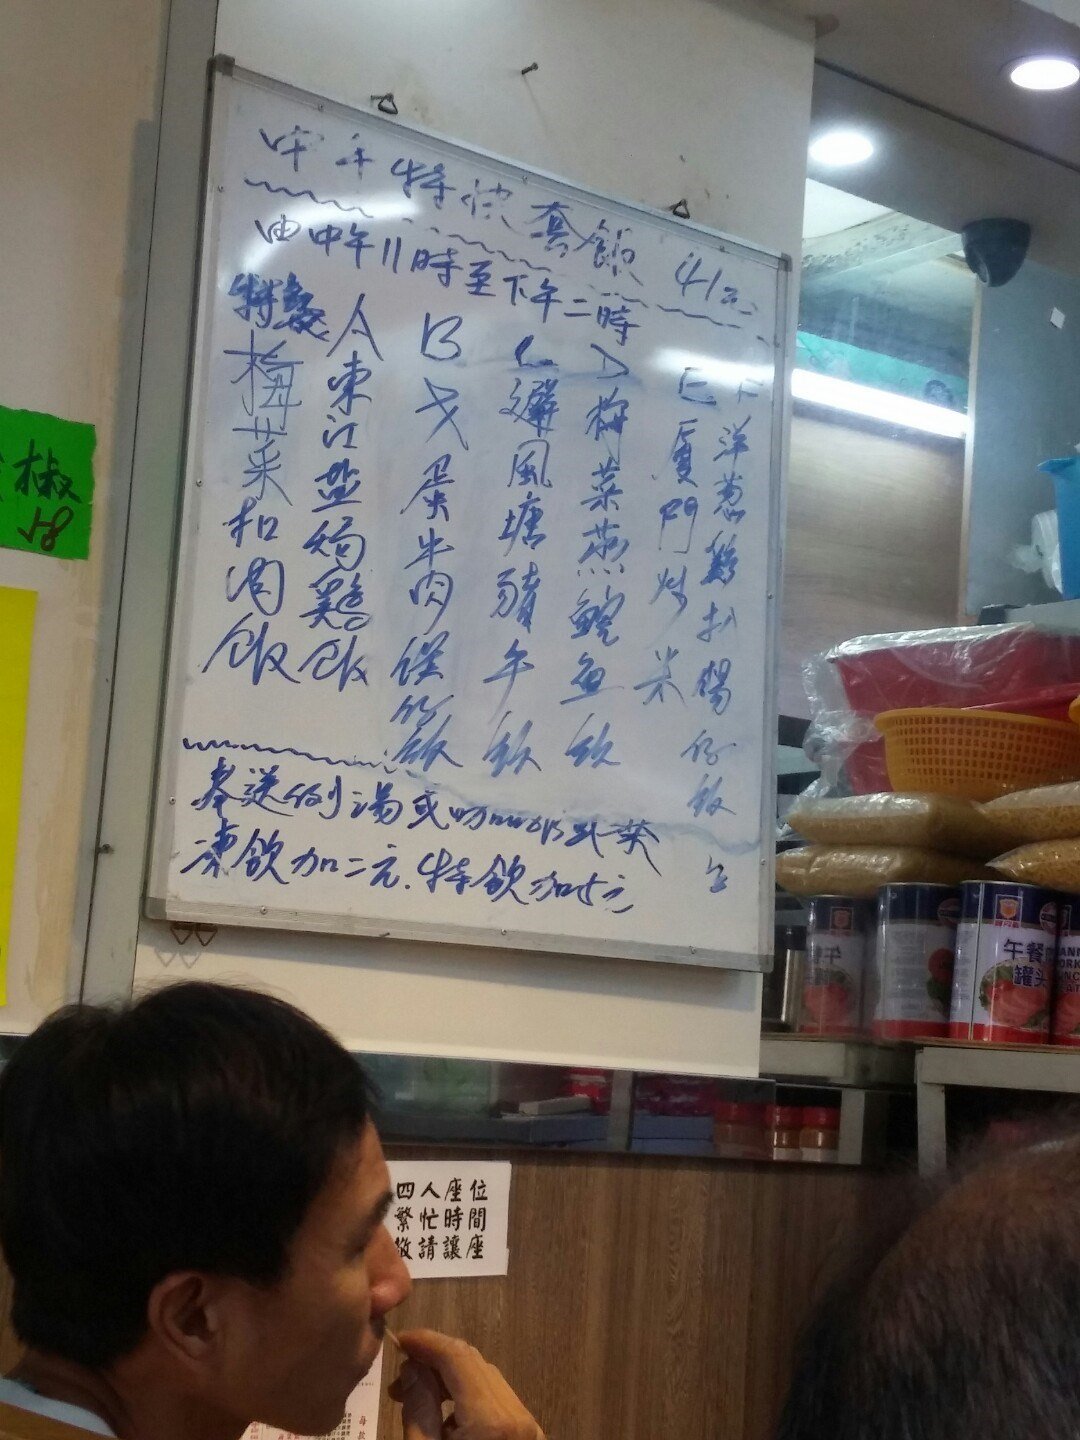 中午特快套飯 41元
由中午11時至下午二時
特餐
梅菜扣肉飯
A 東江盐焗鷄飯
B 叉蛋牛肉飯
C 避風塘豬牛飯
D 梅菜蒸鯇魚飯
E 厦門炒米
F 洋葱雞扒腸仔飯
奉送例湯或咖啡或茶
凍飲加二元.特飲加5元
椒
58
午餐
罐头
四人座位
繁忙時間
敬請讓座